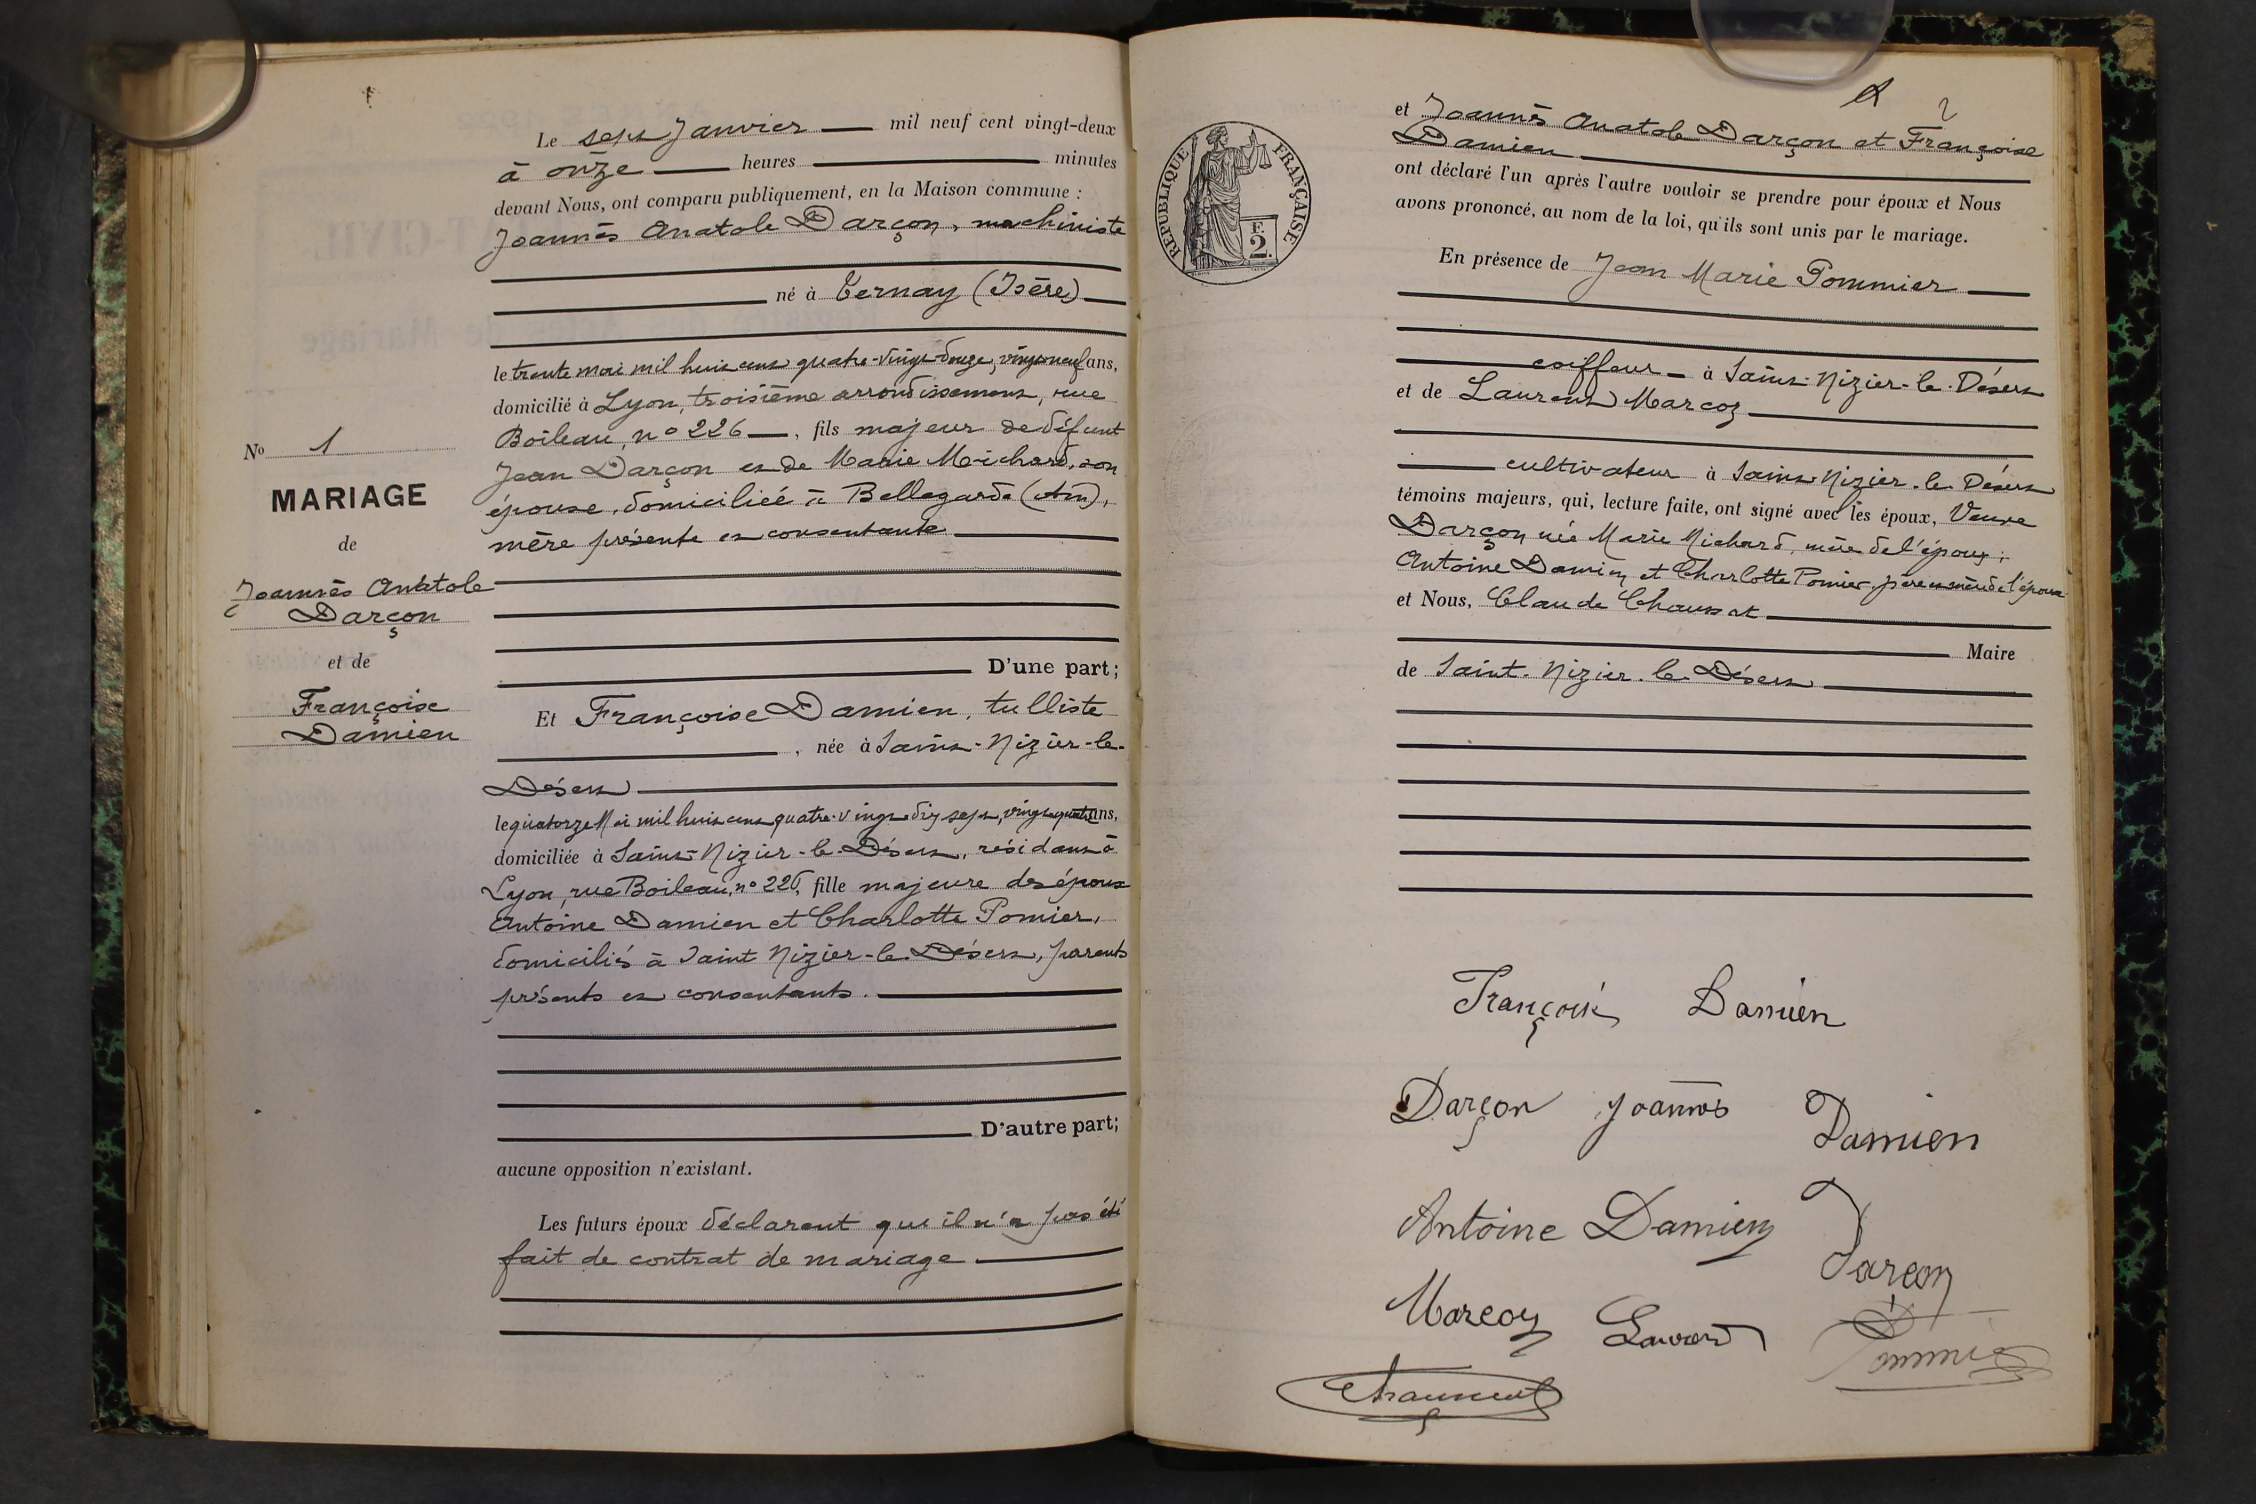 Le sept Janvier mil neuf cent vingt-deux
à onze heures minutes
devant Nous, ont comparu publiquement, en la Maison commune :
Joannès Anatole Darçon, machiniste
né à Ternay (Isère)
le trente mai mil huit cent quatre-vingt-douze, vingt-neuf ans,
domicilié à Lyon, troisième arrondissement, rue
Boileau, no 226, fils majeur de défunt
Jean Darçon et de Marie Michard, son
épouse, domiciliée à Bellegarde (Ain),
mère présente et consentante
D'une part;
No 1
MARIAGE
de
Joannès Anatole
Darçon
et de
Françoise
Damien
Et Françoise Damien, tulliste
, née à Saint-Nizier-le-
Désert
le quatorze Mai mil huit cent quatre-vingt-dix sept, vingt-quatre ans,
domiciliée à Saint-Nizier-le-Désert, résidant à
Lyon, rue Boileau, no 226, fille majeure des époux
Antoine Damien et Charlotte Pomier,
domiciliés à Saint Nizier-le-Désert, parents
présents et consentants.
D'autre part;
aucune opposition n'existant.
Les futurs époux déclarent qu'il n'a pas été
fait de contrat de mariage
2
RÉPUBLIQUE FRANÇAISE
F.
2.
et Joannès Anatole Darçon et Françoise
Damien
ont déclaré l'un après l'autre vouloir se prendre pour époux et Nous
avons prononcé, au nom de la loi, qu'ils sont unis par le mariage.
En présence de Jean Marie Pommier
coiffeur à Saint-Nizier-le-Désert
et de Laurent Marcoz
cultivateur à Saint-Nizier-le-Désert
témoins majeurs, qui, lecture faite, ont signé avec les époux, Veuve
Darçon née Marie Michard, mère de l'époux;
Antoine Damien et Charlotte Pomier, père et mère de l'épouse
et Nous, Claude Chaussat
Maire
de Saint-Nizier-le-Désert
Françoise Damien
Darçon Joannès
Damien
Antoine Damien
Darçon
Marcoz Laurent
Pommier